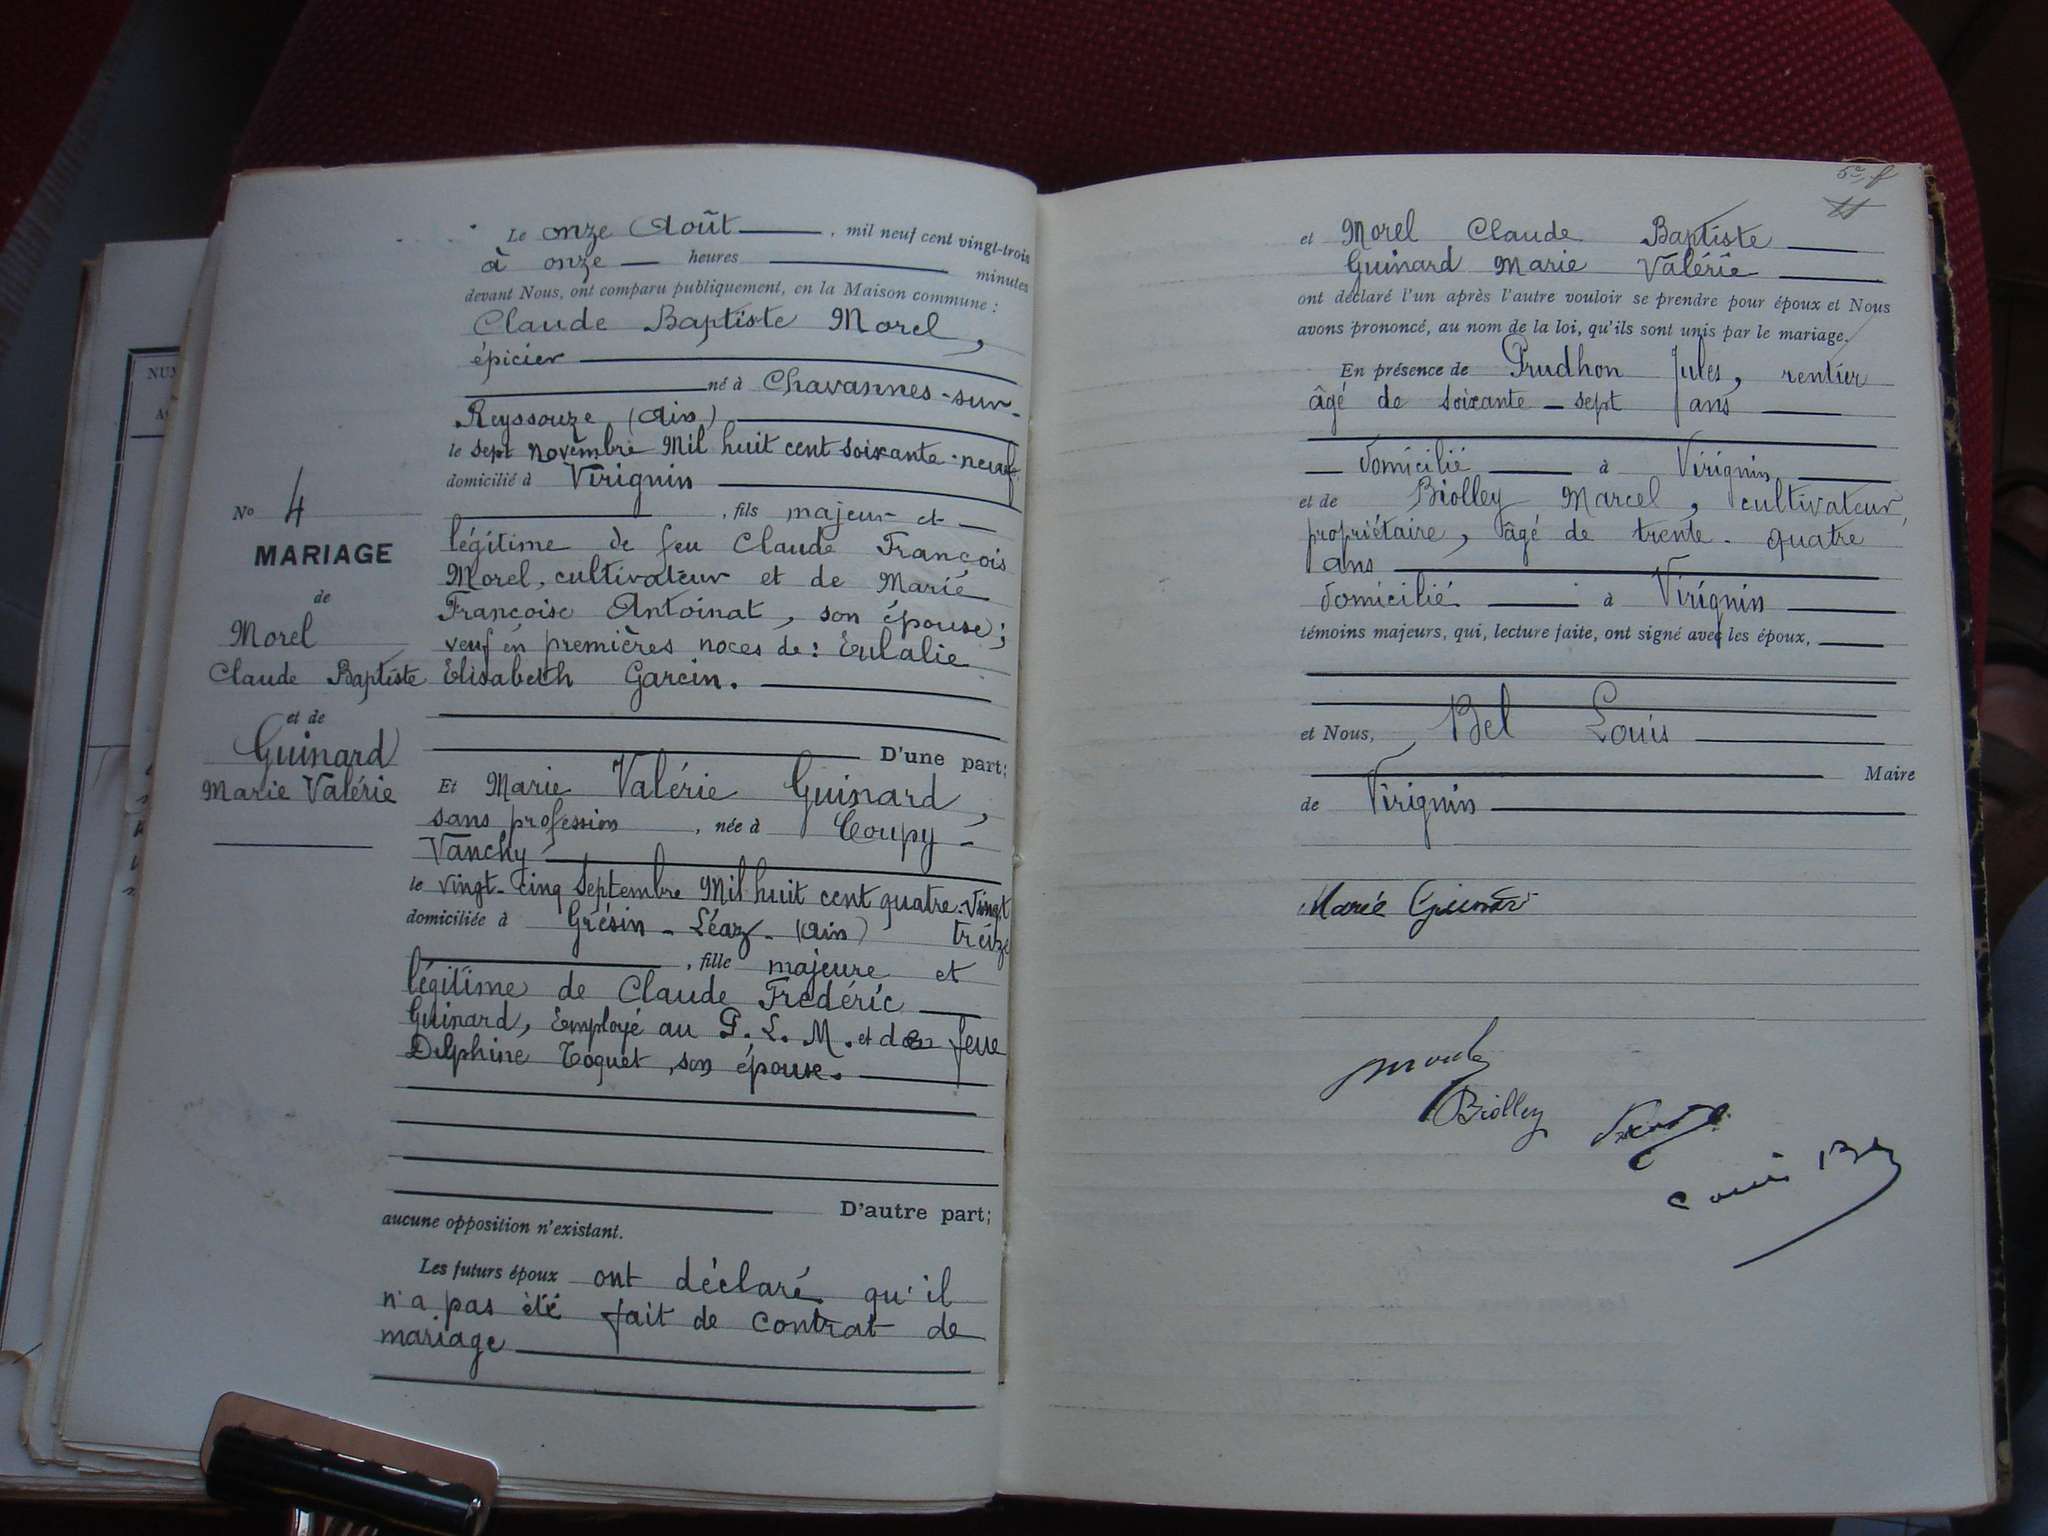 Le onze Août, mil neuf cent vingt-trois
à onze heures minutes
devant Nous, ont comparu publiquement, en la Maison commune :
Claude Baptiste Morel,
épicier
né à Chavannes-sur-
Reyssouze (Ain)
le sept novembre Mil huit cent soixante-neuf
domicilié à Virignin
, fils majeur et
légitime de feu Claude François
Morel, cultivateur et de Marie
Françoise Antoinat, son épouse;
veuf en premières noces de: Eulalie
Elisabeth Garcin.
D'une part;
Et Marie Valérie Guinard,
sans profession, née à Coupy-
Vanchy
le vingt-cinq Septembre Mil huit cent quatre-vingt
treize
domiciliée à Grésin-Léaz-(Ain)
, fille majeure et
légitime de Claude Frédéric
Guinard, Employé au P.L.M. et de feue
Delphine Coquet, son épouse.
D'autre part;
aucune opposition n'existant.
Les futurs époux ont déclaré qu'il
n'a pas été fait de contrat de
mariage
No 4
MARIAGE
de
Morel
Claude Baptiste
et de
Guinard
Marie Valérie
et Morel Claude Baptiste
Guinard Marie Valérie
ont déclaré l'un après l'autre vouloir se prendre pour époux et Nous
avons prononcé, au nom de la loi, qu'ils sont unis par le mariage.
En présence de Prudhon Jules, rentier
âgé de soixante-sept ans
domicilié à Virignin
et de Biolley Marcel, cultivateur,
propriétaire, âgé de trente-quatre
ans
domicilié à Virignin
témoins majeurs, qui, lecture faite, ont signé avec les époux,
et Nous, Bel Louis
Maire
de Virignin
Marie Guinard
Biolley
Louis Bel